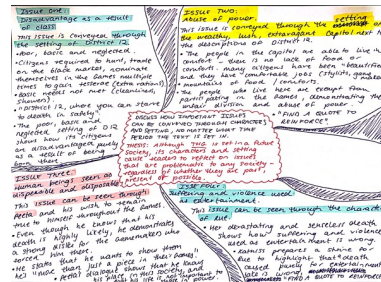 Issue One:
Disadvantage as a result
of class
This issue is conveyed through
the setting of District 12.
poor, basic and neglected.
• Citizens required to hunt, trade
on the black market, nominate
themselves in the games multiple
times to gain tesserae (extra rations).
• Basic needs not met (cleanliness,
showers).
• District 12, where you can starve
to death in safety.
• The poor, basic and
neglected setting of D12
shows how its citizens
are disadvantaged purely
as a result of being
born there.
ISSUE TWO:
Abuse of power.
This issue is conveyed through the setting
the wealthy, lush, extravagant Capitol next to
the descriptions of District 12.
• The people in the Capitol are able to live in
comfort – there is no lack of food or
comfort – many citizens have been
and they have comfortable jobs (stylists, game makers)
• mountains of food / comforts.
• The people who live here are exempt from
participating in the games, demonstrating the
unfair division and abuse of power.
* FIND A QUOTE TO
REINFORCE!
DISCUSS HOW IMPORTANT ISSUES
CAN BE CONVEYED THROUGH CHARACTERS
AND SETTING, NO MATTER WHAT TIME
PERIOD THE TEXT IS SET IN.
THESIS: Although THG is set in a future
society, its characters and setting
cause readers to reflect on issues
that are problematic to any society
regardless of whether they are past,
present or possible.
ISSUE THREE:
Human being seen as
disposable and disposable
This issue can be seen through
Peeta and his wish to remain
true to himself throughout the games.
• Even though he knows that his
death is highly likely, he demonstrates
a strong dislike for the Gamemakers who
forced him there.
• He states that he wants to show them
he's "more than just a piece in their Games."
• Peeta's dialogue shows that he knows
his place in this society, and
his life is not important to
ISSUE FOUR:
Suffering and violence used
as entertainment.
This issue can be seen through the character
of Rue
• Her devastating and senseless death
shows how suffering and violence
used as entertainment is wrong.
• Katniss prepares a shrine for
Rue to highlight that death
caused purely for entertainment
sake is wrong.
* FIND A QUOTE TO